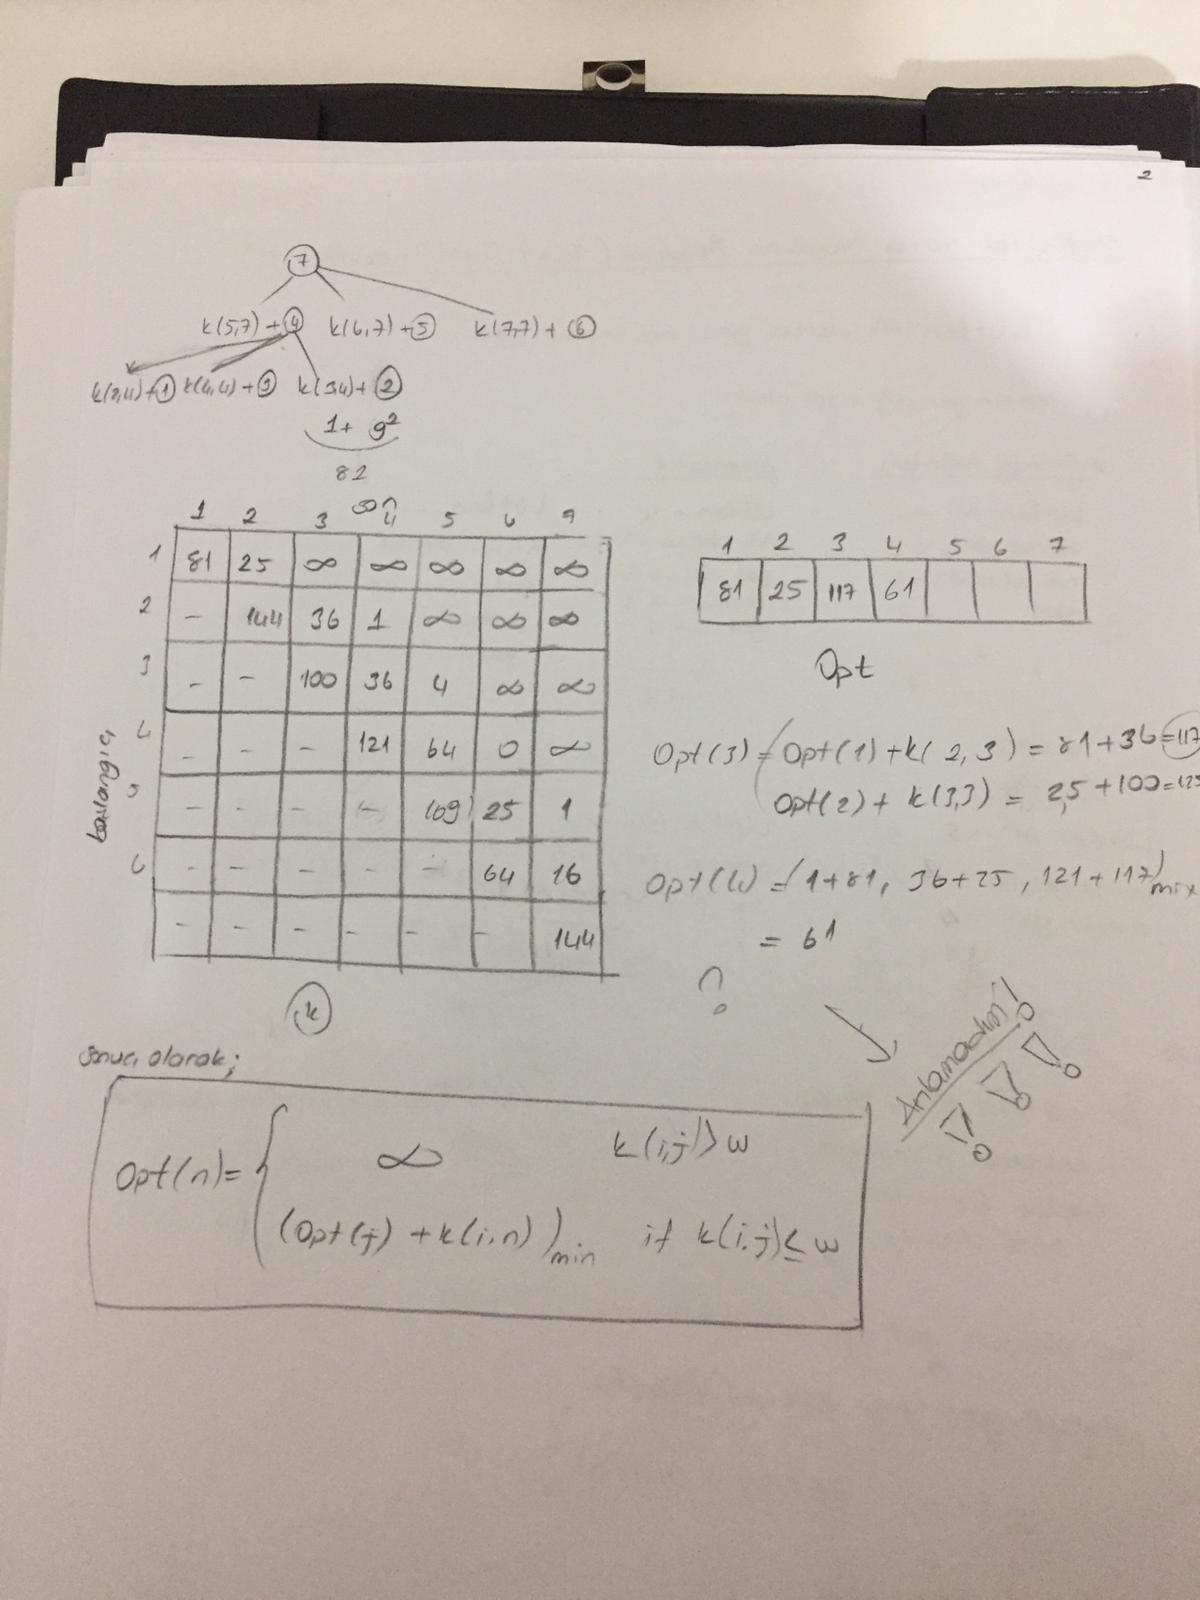 2
7
k(5,7) + 4 k(6,7) + 5 k(7,7) + 6
k(2,4) + 1 k(4,4) + 3 k(3,4) + 2
1 + 9²
82
son
1 2 3 4 5 6 7
1 81 25 ∞ ∞ ∞ ∞ ∞
2 - 144 36 1 ∞ ∞ ∞
3 - - 100 36 4 ∞ ∞
4 - - - 121 64 0 ∞
5 - - - - 169 25 1
6 - - - - - 64 16
- - - - - - 144
başlangıç
k
1 2 3 4 5 6 7
81 25 117 61
Opt
Opt(3) = Opt(1) + k(2,3) = 81 + 36 = 117
Opt(2) + k(3,3) = 25 + 100 = 125
Opt(4) = (1+81, 36+25, 121+117)
= 61
?
Anlamadım!
! ! !
Sonuç olarak;
Opt(n) = { ∞ k(i,j) > w
(Opt(j) + k(i,n))min if k(i,j) ≤ w